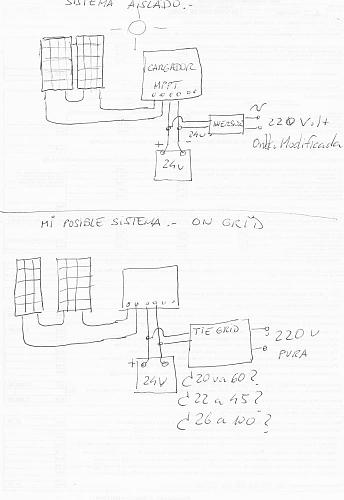 SISTEMA AISLADO.-
CARGADOR
MPPT
INVERSOR
220 Volt
24V
+ -
Ond. Modificada
24V
MI POSIBLE SISTEMA.- ON GRID
TIE GRID
220 V
PURA
+
24V
¿20 va 60?
¿22 a 45?
¿26 a 100?